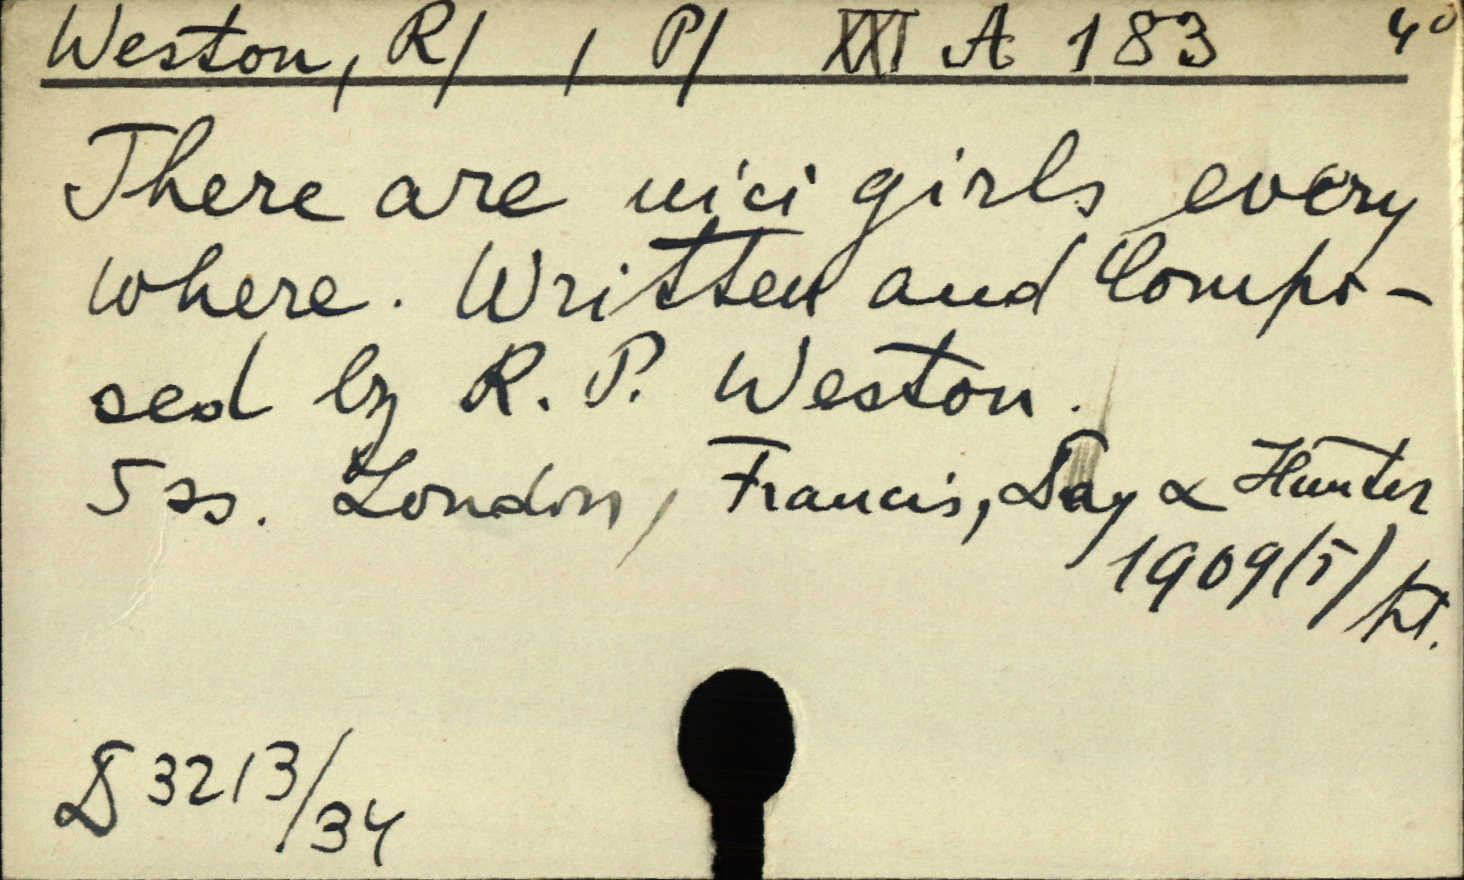 Weston, R/ , P/ XXI A 183 4°
There are nici girls every
where. Written and Compo-
sed by R. P. Weston.
5 ss. London, Francis, Day & Hunter
1909(5)/kt.
D 3213/34